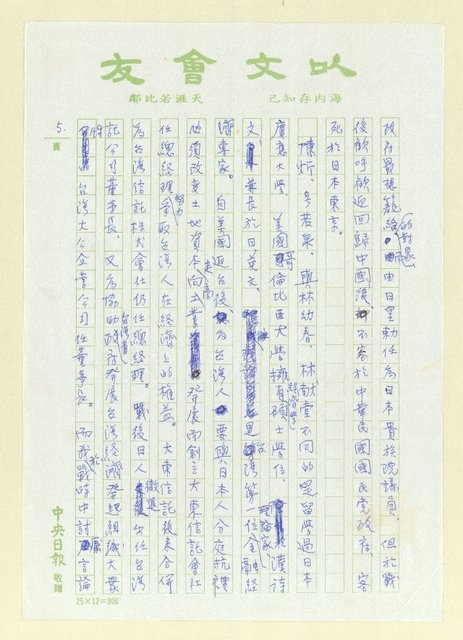 以文會友
海內存知己
天涯若比鄰
政府習現籠絡的對象而由日皇勅任為日本貴族院議員，但於戰
後歡呼歡迎回歸中國後，不容於中華民國國民党政府，客
死於日本東京。
陳炘，号若泉，與林幼春、林獻堂不同的是留學過日本
慶應大學、美國哥倫比亞大學擁有經濟學碩士學位，漢詩
文兼長於日英文，是台灣第一位金融經
濟專家。自美國返台後，為台灣人要與日本人分庭抗禮
他須改變土地資本走向企業發展而創立大東信託會社
任總經理努力爭取台灣人在經濟上的權益。大東信託後來合併
為台灣信託株式會社仍任總經理。戰後日人撤退出任台灣
託公司董事長，又為協助政府發展台灣經濟發起組織大眾
性台灣大公企業公司任董事長。而於戰時中討厭言論
5.
頁
中央日報 敬贈
25×12=300